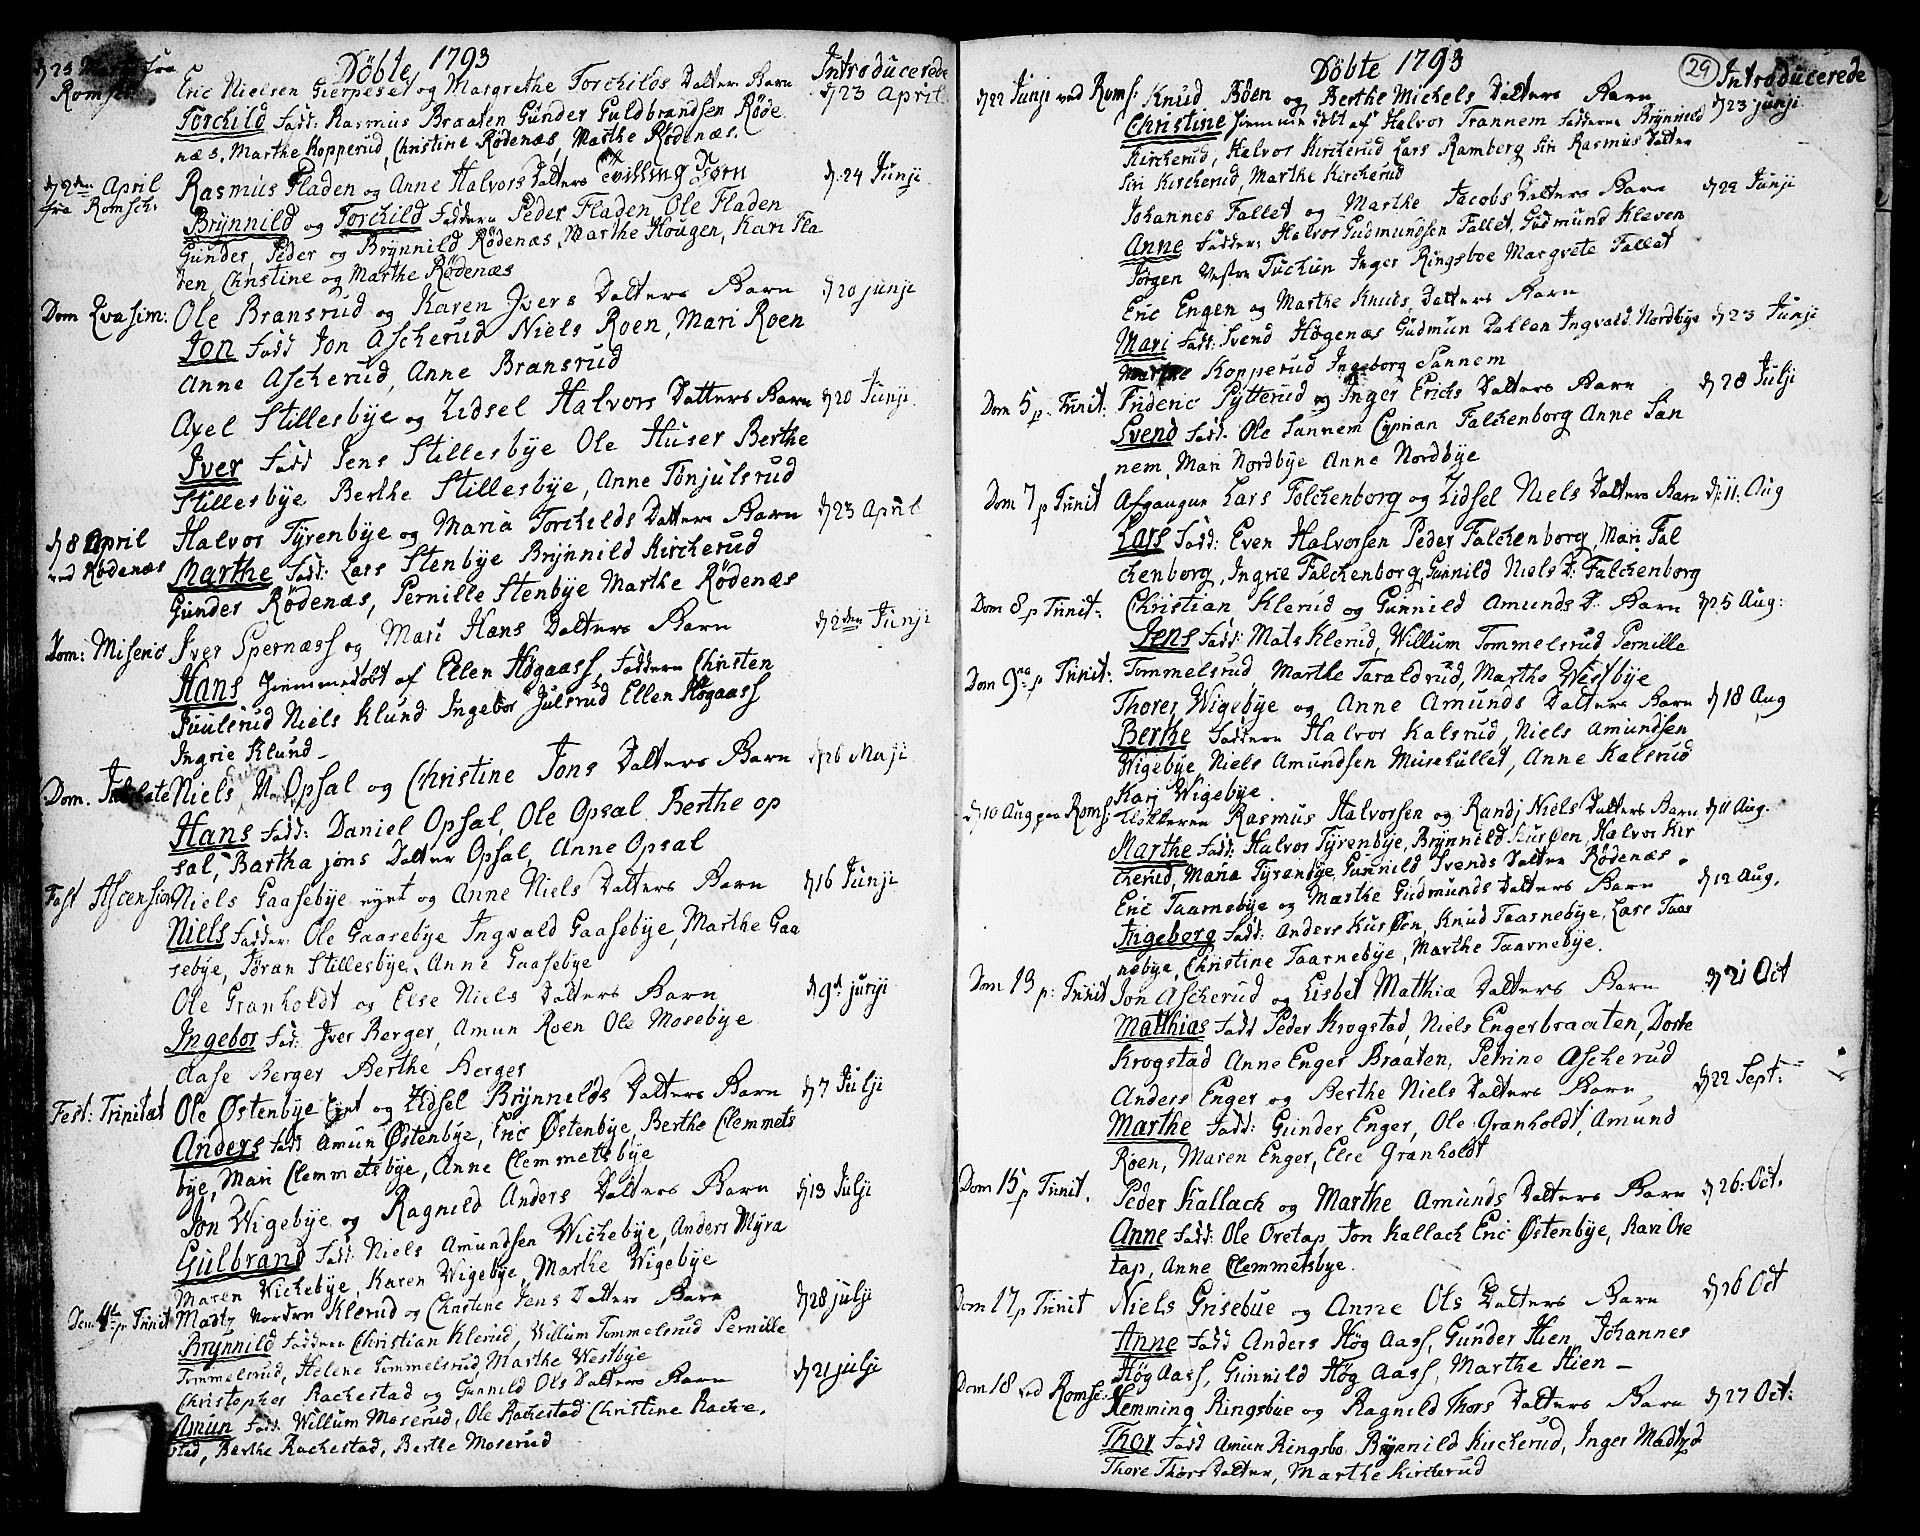 Döbte 1793
Introducerede
d 25 Martj fra Romsk.
Eric Nielsen Gierpeset og Margrethe Torchilds Datters Barn
d 23 April
Torchild Fadd: Rasmus Braaten Gunder Guldbrandsen Røde
næs, Marthe Kopperud, Christine Rødenæs, Marthe Rødenæs.
d 2den April fra Romsk:
Rasmus Fladen og Anne Halvors Datters Tvilling Børn
d. 24 Junji
Brynnild og Torchild Faddern Peder Fladen, Ole Fladen
Gunder, Peder og Brynnild Rødenæs, Marthe Hougen, Kari Fla
den, Christine og Marthe Rødenæs
Dom Qvasim:
Ole Bransrud og Karen Jvers Datters Barn
d 20 junji
Jon Fadd Jon Ascherud Niels Roen, Mari Roen
Anne Ascherud, Anne Bransrud
Axel Stillesbye og Zidsel Halvors Datters Barn
d 20 Junji
Jver Fadd Jens Stillesbye Ole Huser Berthe
Stillesbye Berthe Stillesbye, Anne Tonjulsrud
d 8 April ved Rødenæs
Halvor Tyrenbye og Maria Torchilds Datters Barn
d 23 April
Marthe Fadd: Lars Stenbye Brynnild Kircherud
Gunder Rødenæs, Pernille Stenbye Marthe Rødenæs
Dom: Miseric
Jver Spernæss og Mari Hans Datters Barn
d 2den Junji
Hans hiemmedøbt af Ellen Høgaass, Faddern Christen
Juulsrud Niels Klund Ingebor Julsrud Ellen Høgaass
Ingrie Klund
Dom. Jubilate
Niels N. Opsal og Christine Jons Datters Barn
d 26 Maji
Hans Fadd: Daniel Opsal, Ole Opsal Berthe op
sal, Bartha jons Datter Opsal, Anne Opsal
Fast Ascension
Niels Gaasebye eynt og Anne Niels Datters Barn
d 16 Junji
Niels Fadder: Ole Gaasebye Ingvald Gaasebye, Marthe Gaa
sebye, Jøran Stillesbye, Anne Gaasebye
Ole Granholdt og Else Niels Datters Barn
d 9d junji
Ingebor Fad: Jver Berger, Amun Roen Ole Mosebye
Aase Berger Berthe Berger
Fest: Trinitat
Ole Østenbye Eynt og Zidsel Brynnelds Datters Barn
d 7 Julji
Anders Fadd Amun Østenbye, Eric Østenbye, Berthe Clemmets
bye, Mari Clemmetsbye, Anne Clemmetsbye
Jon Wigebye og Ragnild Anders Datters Barn
d 13 Julji
Gulbrand Fadd: Niels Amundsen Wichebye, Anders Myra
Maren Wichebye, Karen Wigebye, Marthe Wigebye
Dom 4te p Trinit
Madtz Nordrn Klerud og Christine Jens Datters Barn
d 28 julji
Brynnild Faddern Christian Klerud, Willum Tommelsrud Pernille
Tommelsrud, Helene Tommelsrud, Marthe Westbye
Christopher Rachestad og Gunnild Ols Datters Barn
d 21 julji
Amun Fadd: Willum Moserud, Ole Rachestad Christine Rache.
stad, Berthe Rachestad, Berthe Moserud
Döbte 1793
29
Introducerede
d 22 Junji ved Roms:
Knud Bøen og Berthe Michels Datters Barn
d 23 junji
Christine hiemmedöbt af Halvor Trannem Fadderne Brynnild
Kircherud, Halvor Kircherud Lars Ramberg Siri Rasmus Datter
Siri Kircherud, Marthe Kircherud
Johannes Fallet og Marthe Jacobs Datters Barn
d 22 Junji
Anne Fadder: Halvor Gudmundsen Fallet, Gudmund Kleven
Jørgen Vestre Tuchun Inger Ringsboe Margrete Fallet
Eric Engen og Marthe Knuds Datters Barn
d 23 Junji
Mari Fadd: Svend Høgenæs Gudmun Dallen Ingvald Nordbye
Marthe Kopperud Ingeborg Sannem
Dom 5 p. Trinit:
Frideric Pytterud og Inger Erichs Datters Barn
d 28 Julji
Svend Fadd: Ole Sannem Cyprian Falchenborg Anne San
nem, Mari Nordbye Anne Nordbye
Dom 7 p Trinit
Afgangne Lars Folchenborg og Zidsel Niels Datters Barn
d: 11. Aug
Lars Fadd: Even Halvorsen Peder Falchenborg, Mari Fal
chenborg, Ingrie Falchenborg, Gunnild Niels D: Falchenborg
Dom 8 p Trinit:
Christian Klerud og Gunnild Amunds D. Barn
d 25 Aug:
Jens Fadd: Mats Klerud, Willum Tommelsrud Pernille
Tommelsrud, Marthe Taraldrud, Marthe Westbye
Dom 9na p Trinit:
Thorer Wigebye og Anne Amunds Datters Barn
d 18 Aug
Berthe Faddern Halvor Kalsrud, Niels Amundsen
Wigebye, Niels Amundsen Musehullet, Anne Kalsrud
Karj Wigebye.
d 10 Aug paa Roms:
Klokkeren Rasmus Halvorsen og Randj Niels Datters Barn
d 11 Aug.
Marthe Fadd: Halvor Tyrenbye, Brynnild Kursøen, Halvor Kir
cherud, Maria Tyrenbye, Gunnild Svends Datter Rødenæs.
Eric Taarnebye og Marthe Gudmunds Datters Barn
d 12 Aug.
Ingeborg Fadd: Anders Kursøn, Knud Taarnebye, Lars Taar
nebye, Christine Taarnebye, Marthe Taarnebye.
Dom 13 p: Trinit
Jon Ascherud og Lisbet Mathiæ Datters Barn
d 21 Oct
Matthias Fadd Peder Krogstad, Niels Engerbraaten, Dorte
Krogstad Anne Enger Braaten, Petrine Ascherud
Anders Enger og Berthe Niels Datters Barn
d 22 Sept:
Marthe Fadd: Gunder Enger, Ole Granholdt, Amund
Roen, Maren Enger, Else Granholdt
Dom 15 p Trinit.
Peder Kallach og Marthe Amunds Datters Barn
d 26: Oct.
Anne Fadd: Ole Oretap, Jon Kallach Eric Østenbye, Kari Ore
tap, Anne Clemmetsbye.
Dom 17 p Trinit
Niels Grisebue og Anne Ols Datters Barn
d 26 Oct
Anne Fadd Anders Høg Aass, Gunder Hien, Johannes
Høg Aass, Gunnild Høg Aass, Marthe Hien
Dom 18 ved Romsc.
Hemming Ringsbye og Ragnild Thors Datters Barn
d 27 Oct:
Thor Fadd Amun Ringsbo Brynnild Kircherud, Inger Madtzd
Thore Thors Datter, Marthe Kircherud